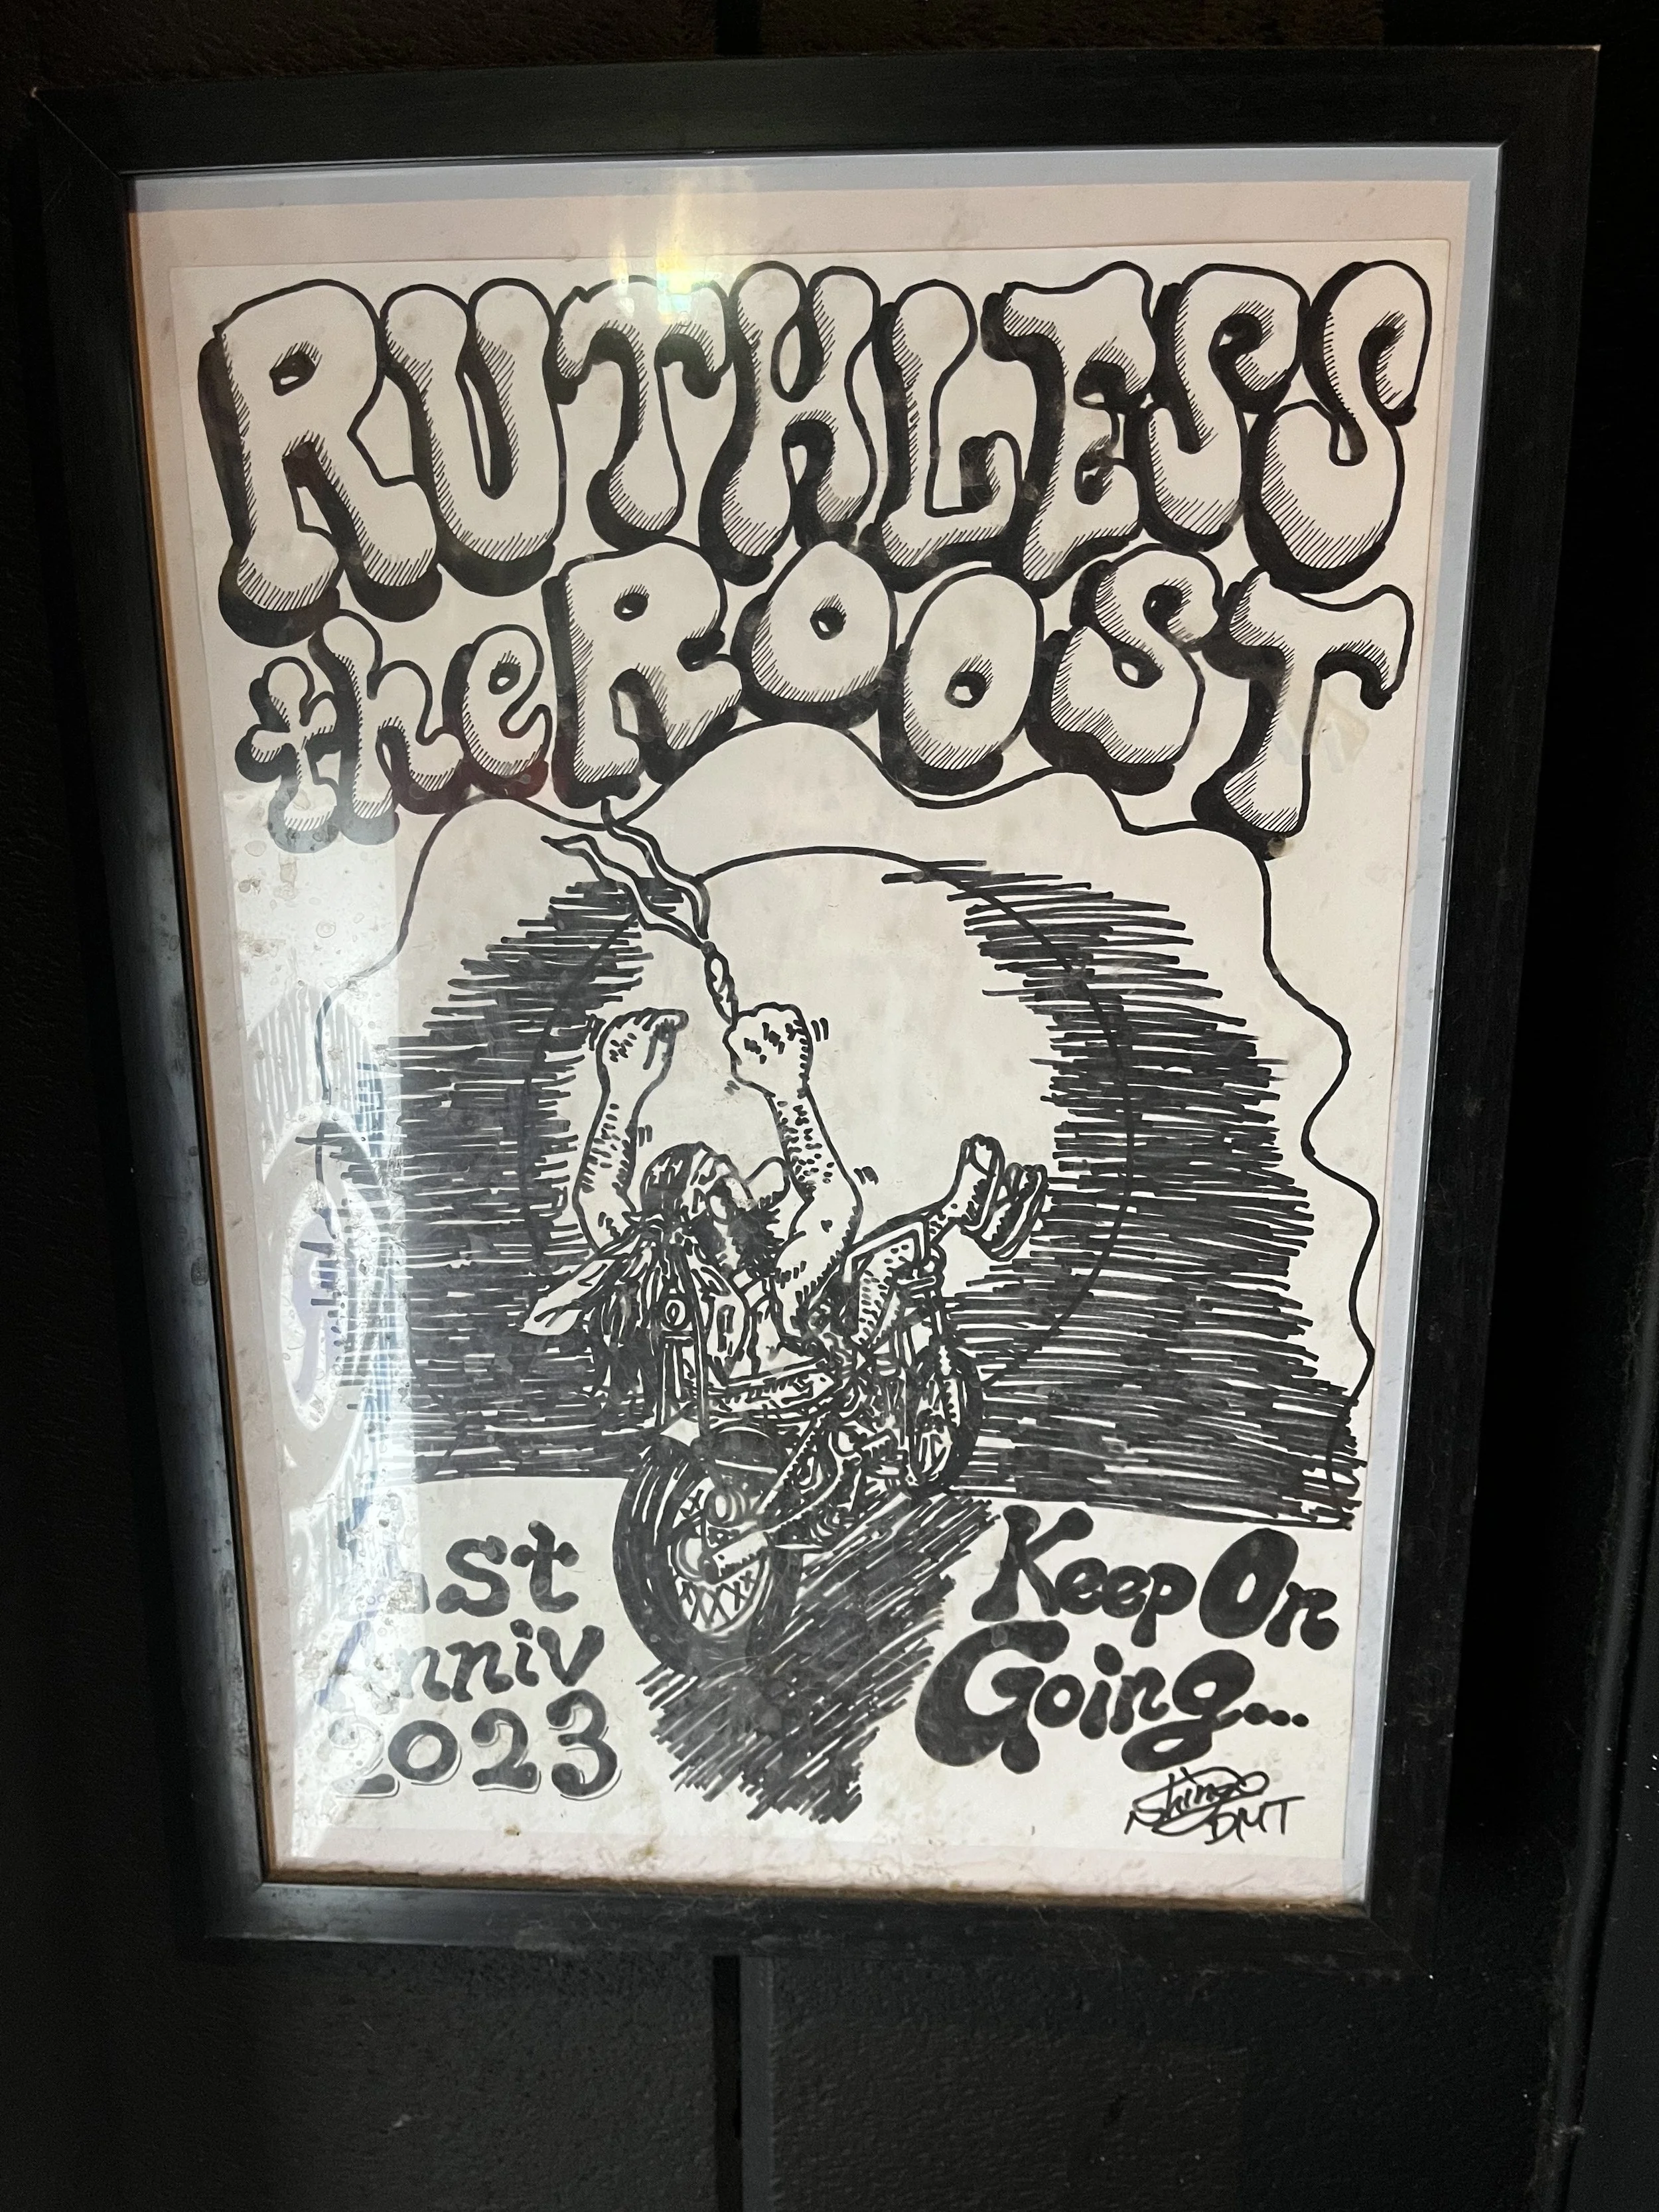 RUTHLESS
the ROOST
1st
Anniv
2023
Keep On
Going...
Shinzo
DMT